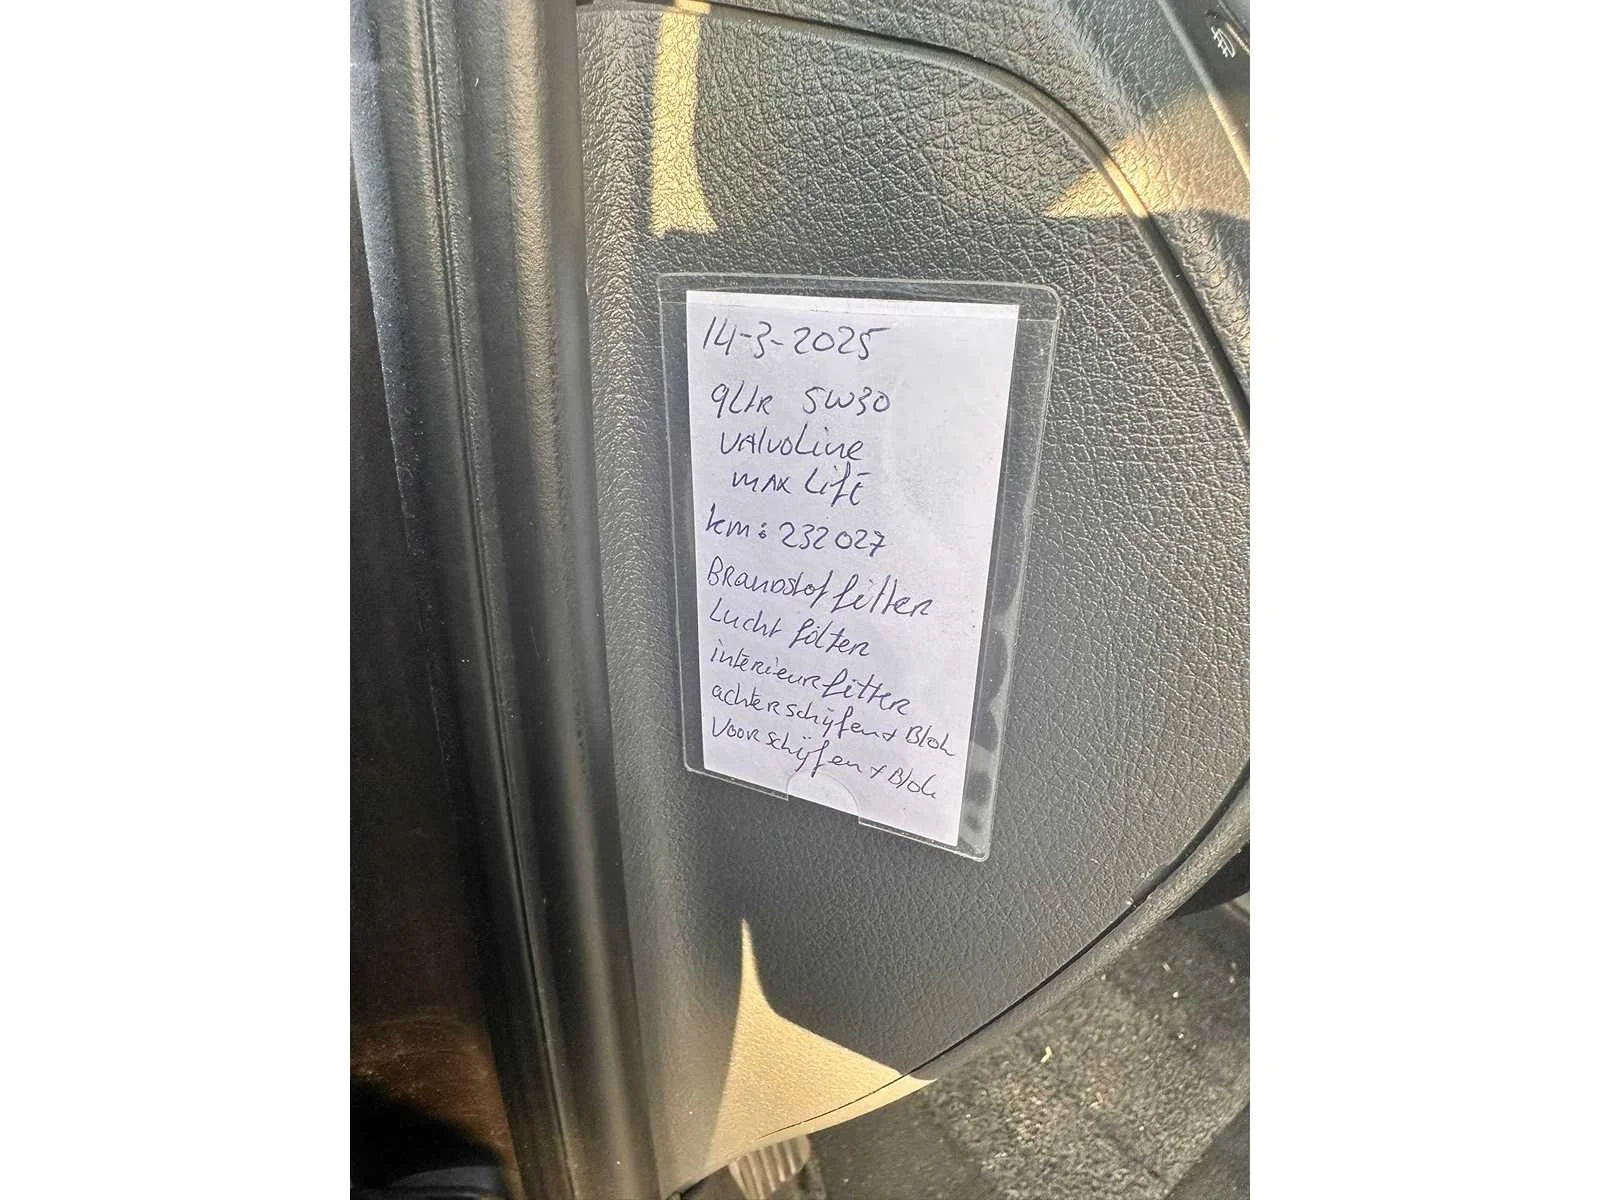 14-3-2025
9Ltr 5W30
Valvoline
Max Lift
km: 232027
Brandstof filter
Lucht filter
interieur filter
achter schijfen + Blok
Voor schijfen + Blok